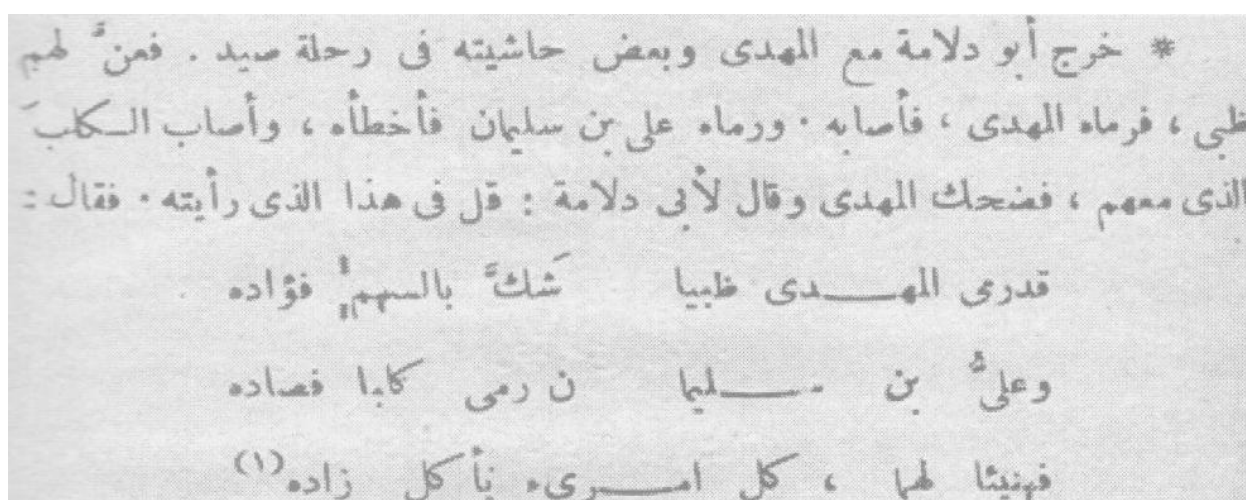 * خرج أبو دلامة مع المهدى وبعض حاشيته فى رحلة صيد . فعنَّ لهم
ظبى ، فرماه المهدى ، فأصابه . ورماه على بن سليمان فأخطأه ، وأصاب الكلبَ
الذى معهم ، فضحك المهدى وقال لأبى دلامة : قل فى هذا الذى رأيته . فقال :
قدرمى المهدى ظبيا شكَّ بالسهم فؤاده
وعلىُّ بن سليما ن رمى كلبا فصاده
فهنيئا لهما ، كل امرىء يأكل زاده (١)